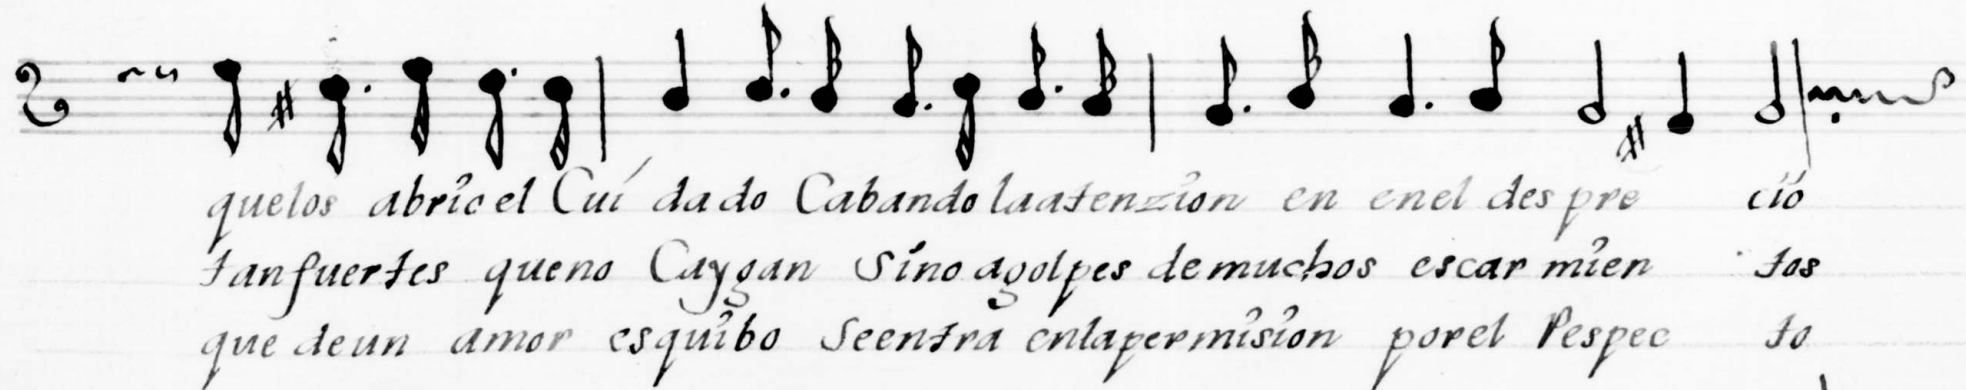 quelos abricel Cuí dado Cabando laatenzion en enel des pre cio
tanfuertes queno Caygan Sino agolpes demuchos escar mien tos
que deun amor esquibo Seentra enlapermision porel Respec to